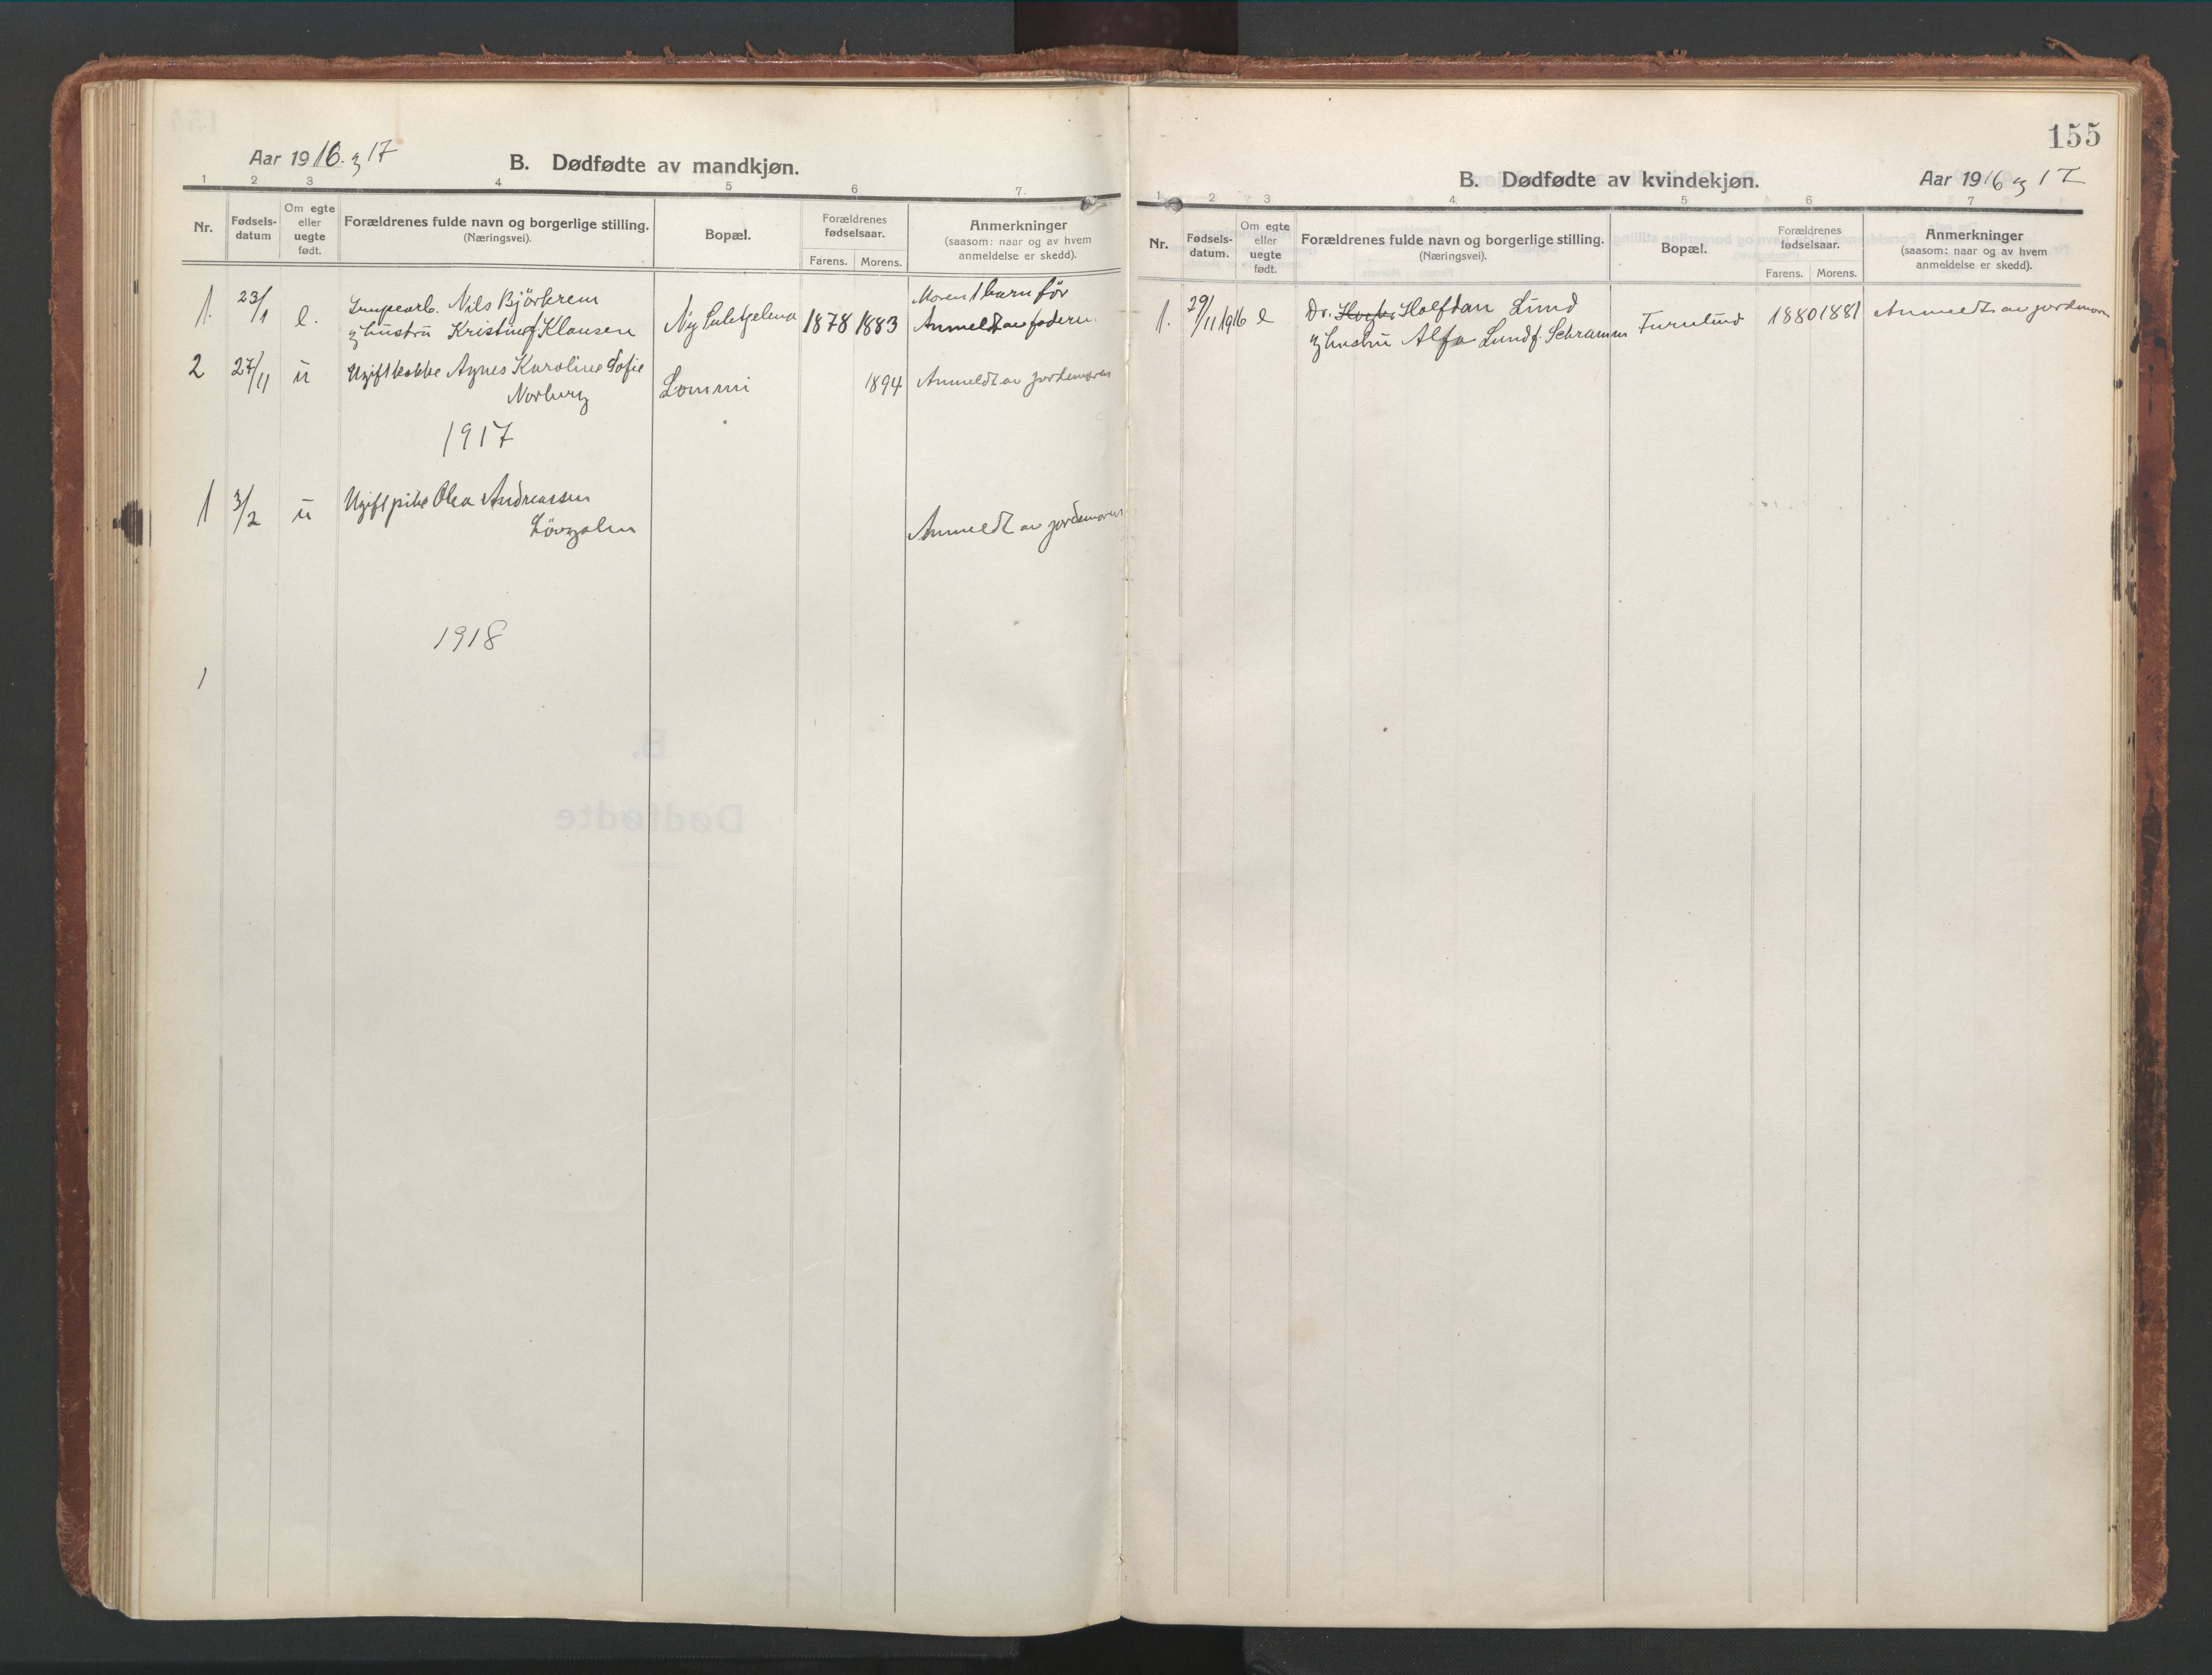 Aar 1916. og 17
B. Dødfødte av mandkjøn.
1 2 3 4 5 6 7.
Nr.
Fødsels-
datum
Om egte
eller
uegte
født.
Forældrenes fulde navn og borgerlige stilling.
(Næringsvei).
Bopæl.
Forældrenes
fødselsaar.
Farens. Morens.
Anmerkninger
(saasom: naar og av hvem
anmeldelse er skedd).
1. 23/1 e. Nils Björkrem 1878 1883 Moren 1 barn før
og hustru Kristine f. Klausen Anmeldt av faderen.
2 27/11 u Ugift kokke Agnes Karoline Sofie
Norberg Lommi 1894 Anmeldt av jordemoren
1917
1 3/2 u Ugift pike Olea Andreassen
Anmeldt av jordemoren
1918
1
155
B. Dødfødte av kvindekjøn.
Aar 1916 og 17
1 2 3 4. 5 6 7
Nr.
Fødsels-
datum.
Om egte
eller
uegte
født.
Forældrenes fulde navn og borgerlige stilling.
(Næringsvei).
Bopæl.
Forældrenes
fødselsaar.
Farens. Morens.
Anmerkninger
(saasom: naar og av hvem
anmeldelse er skedd).
1. 29/11 1916 e Dr. Halfdan Lund Furulund 1880 1881 Anmeldt av jordmoren
og hustru Alfa Lund f. Schramm
B.
Dødfødte